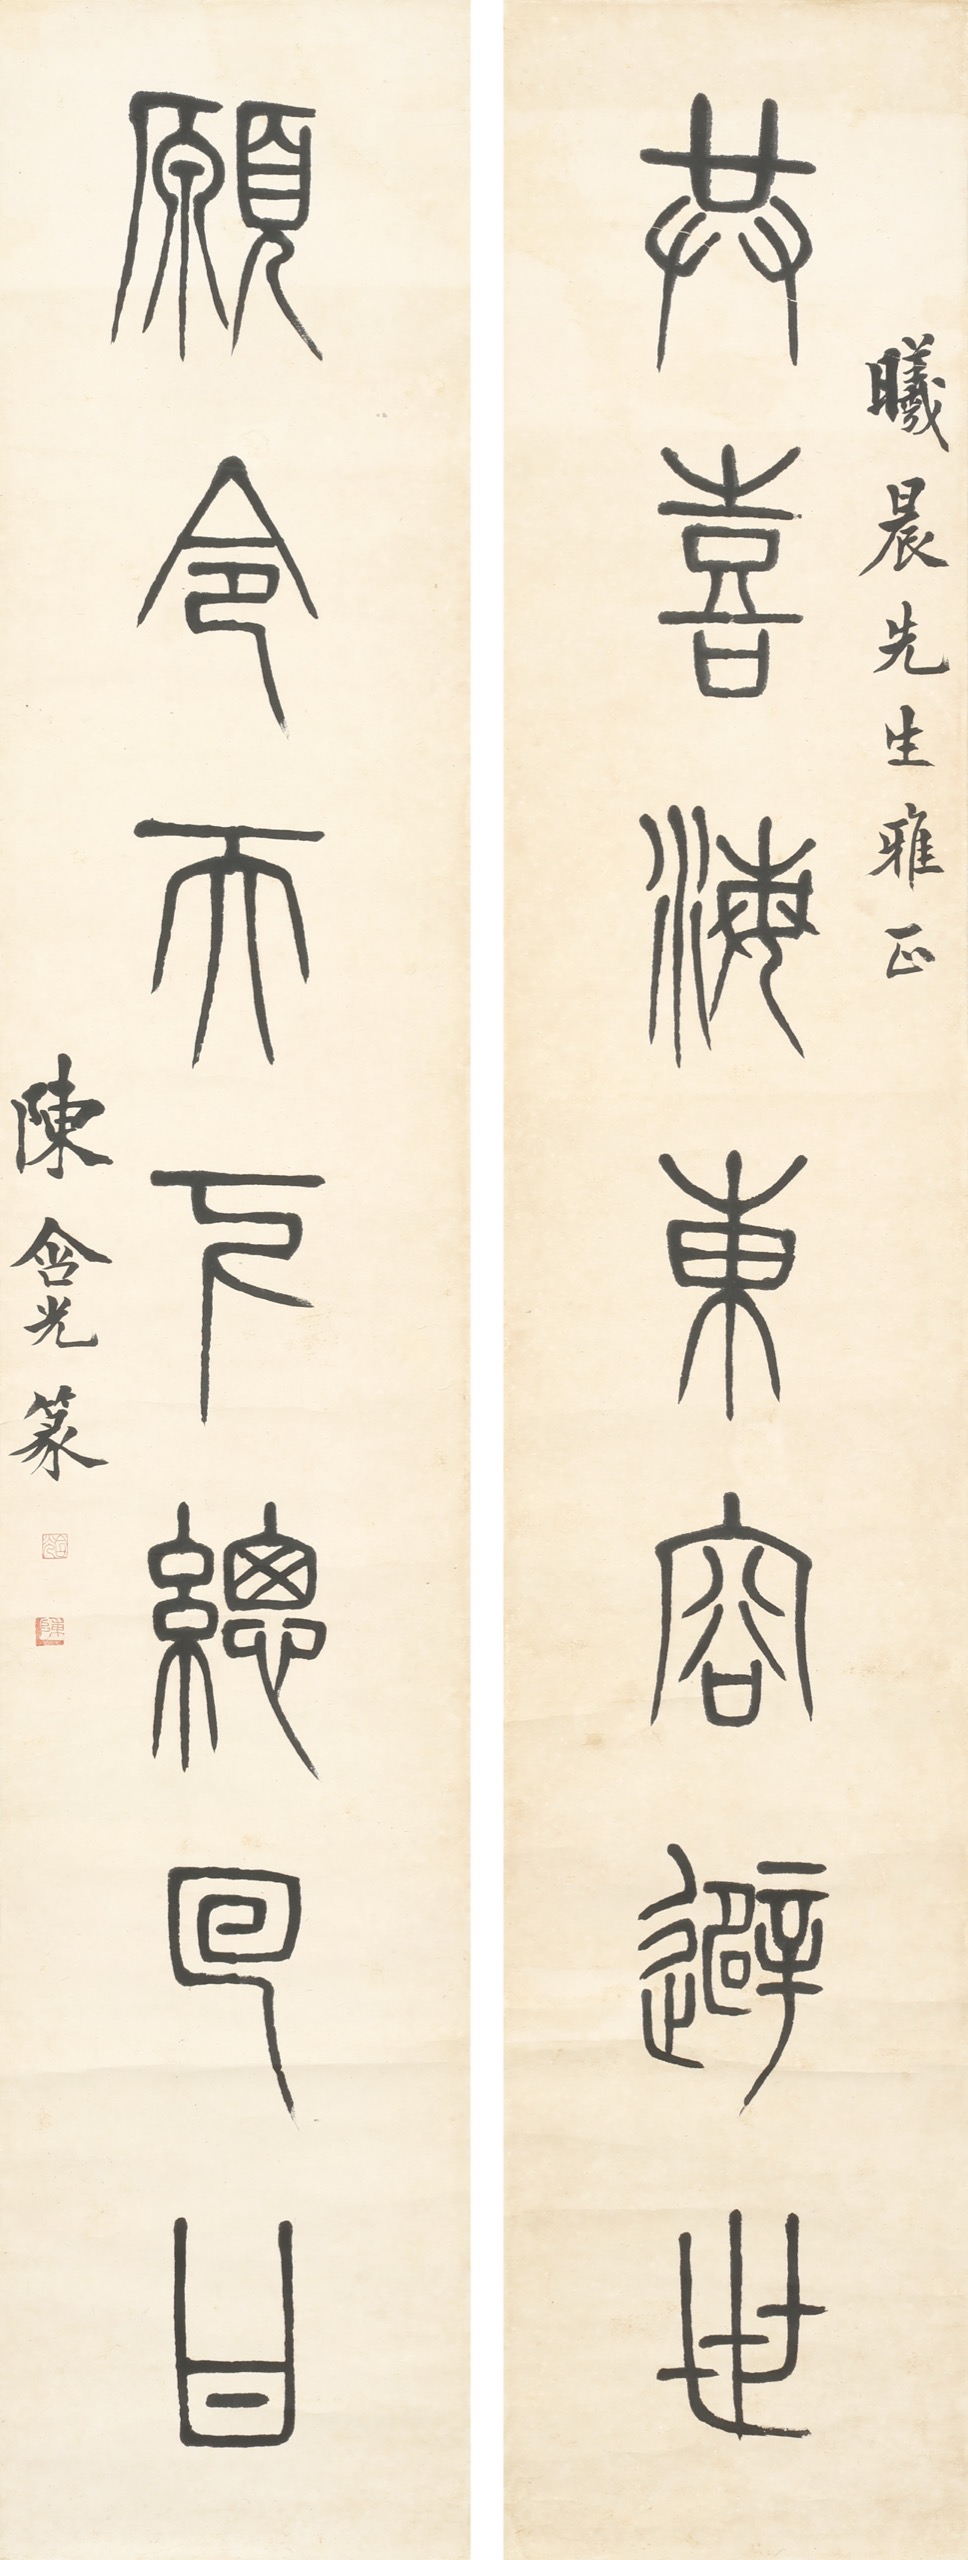 曦晨先生雅正
共喜海東容避世
願令天下總回甘
陳含光篆
含光
陳